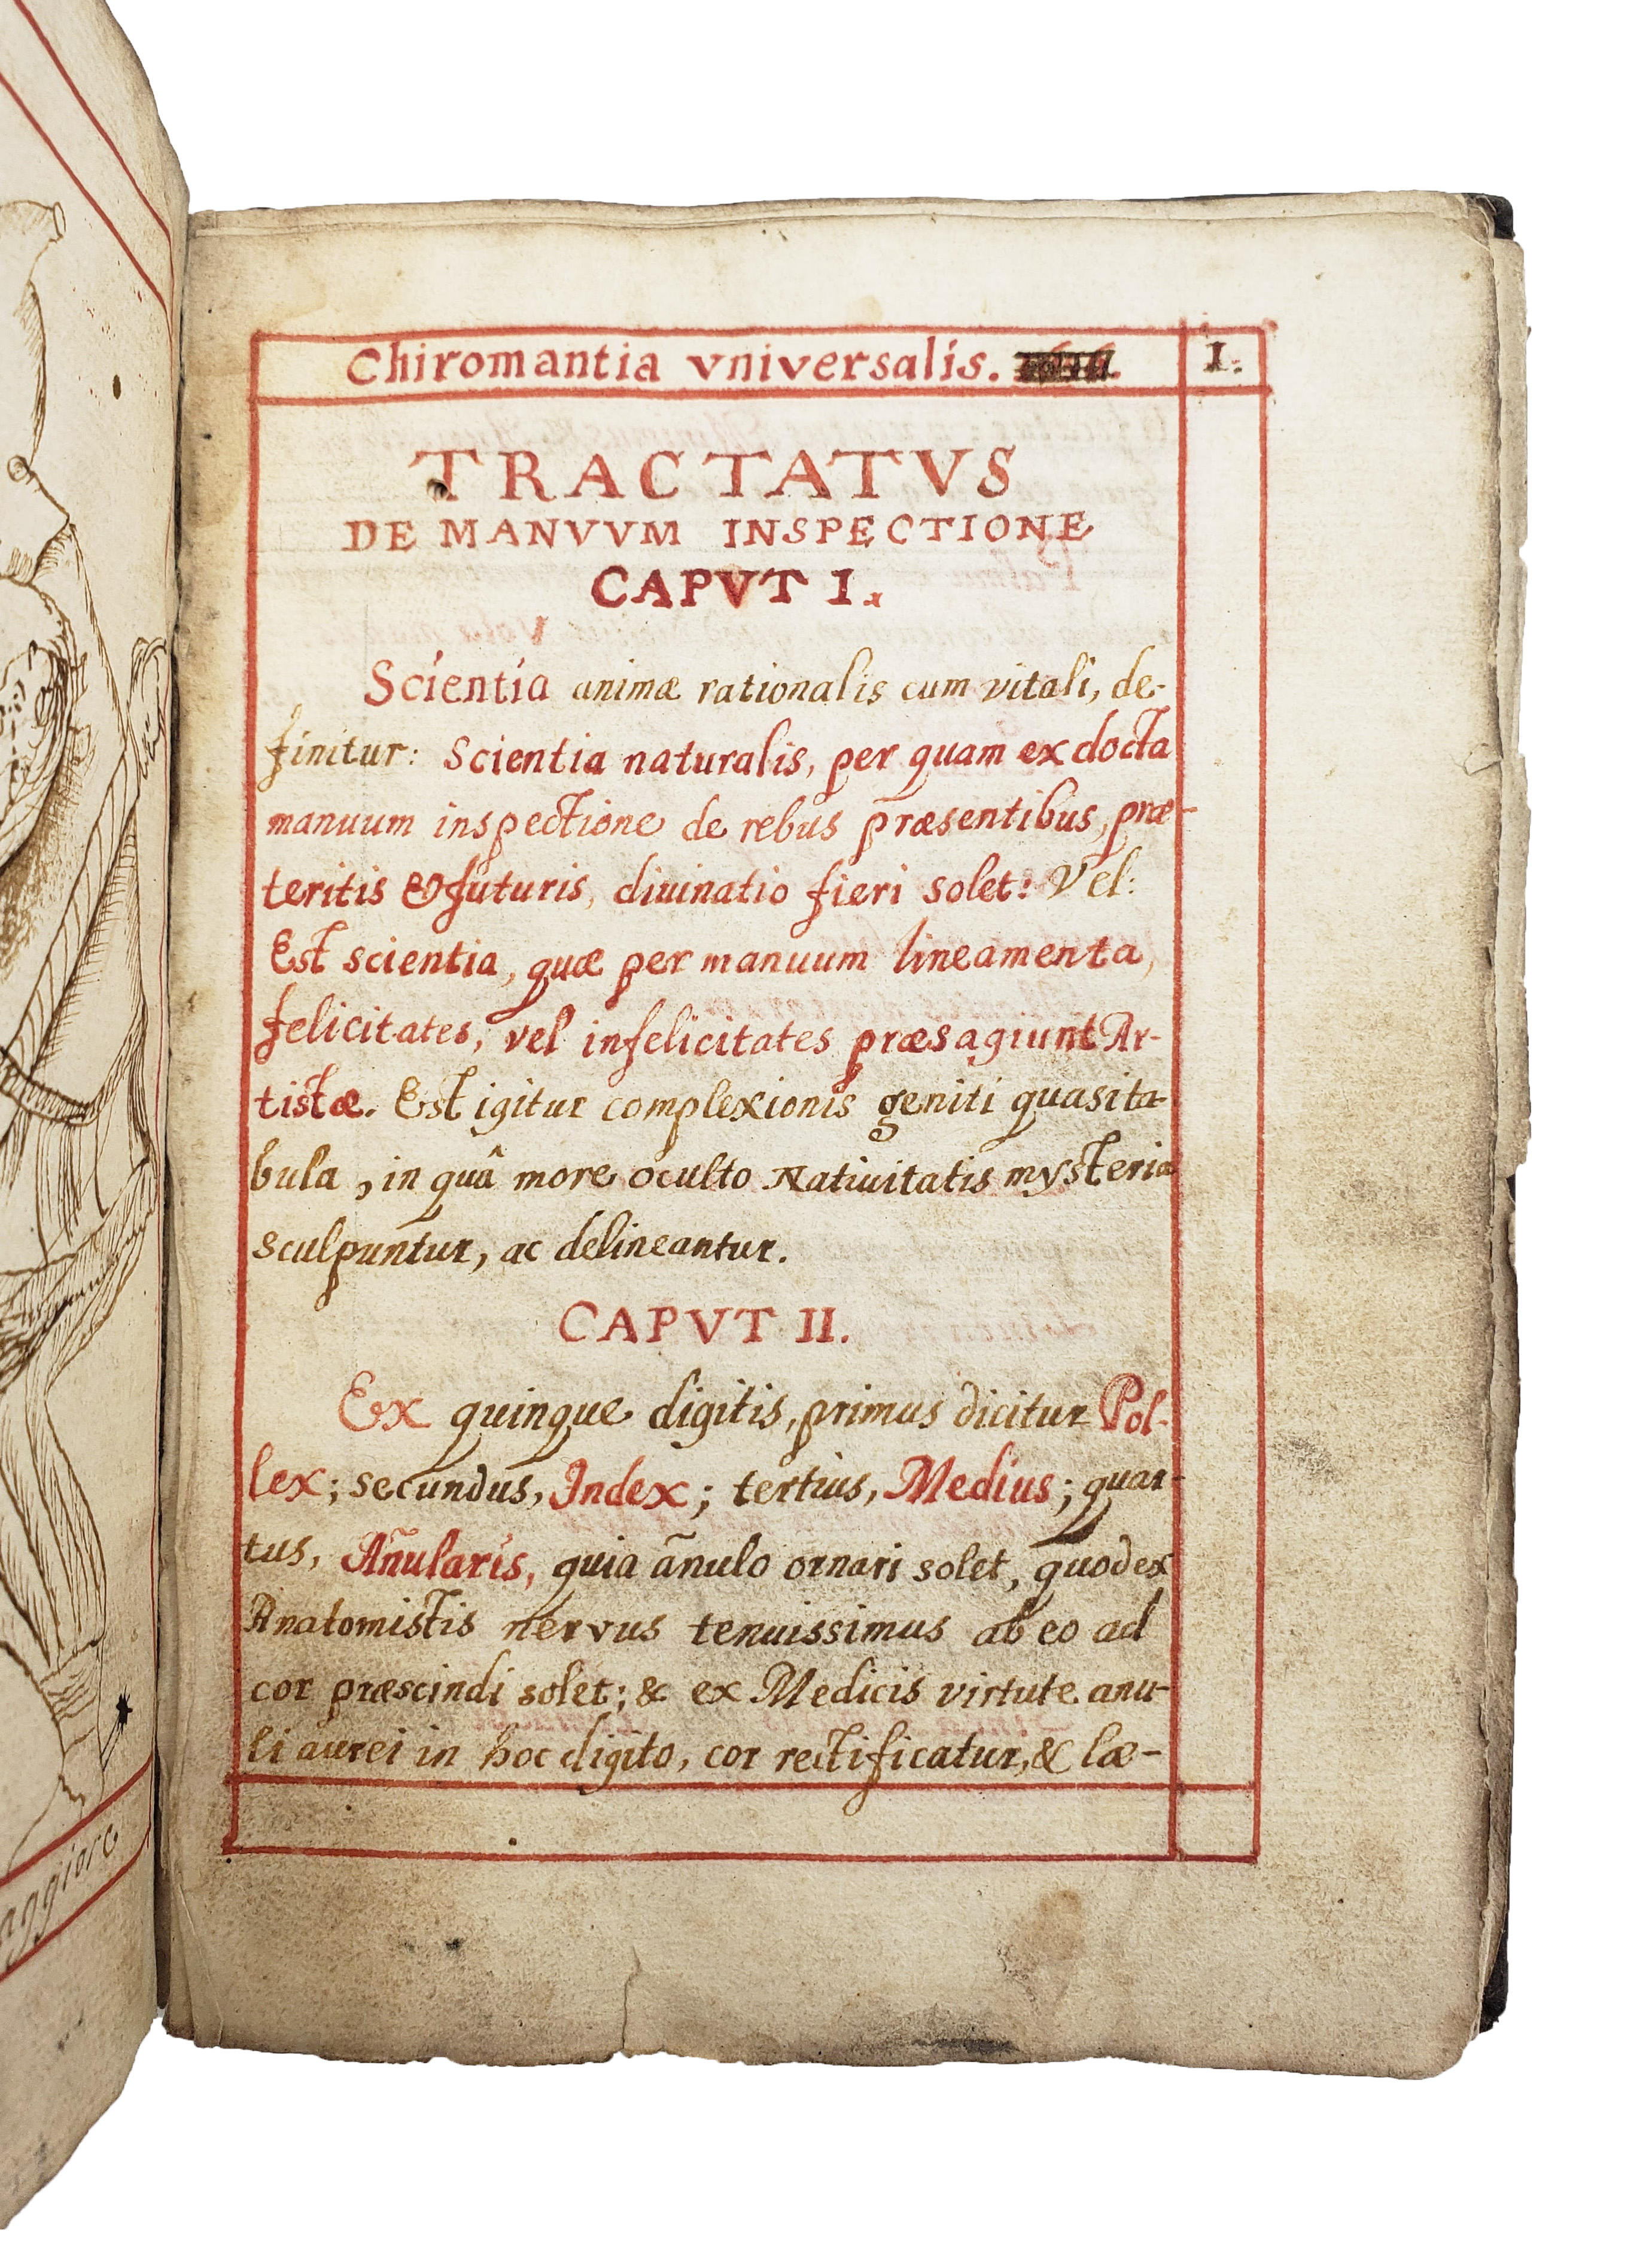 aggiore
Chiromantia vniversalis.
1.
TRACTATVS
DE MANVVM INSPECTIONE
CAPVT I.
Scientia animæ rationalis cum vitali, de-
finitur: Scientia naturalis, per quam ex docta
manuum inspectione de rebus præsentibus, præ-
teritis & futuris, diuinatio fieri solet: Vel:
Est scientia, quæ per manuum lineamenta,
felicitates, vel infelicitates præsagiunt Ar-
tistæ. Est igitur complexionis geniti quasi ta-
bula, in quâ more oculto Natiuitatis mysteria
sculpuntur, ac delineantur.
CAPVT II.
Ex quinque digitis, primus dicitur Pol-
lex; secundus, Index; tertius, Medius; quar-
tus, Añularis, quia ãnulo ornari solet, quod ex
Anatomistis nervus tenuissimus ab eo ad
cor præscindi solet; & ex Medicis virtute anu-
li aurei in hoc digito, cor rectificatur, & læ-